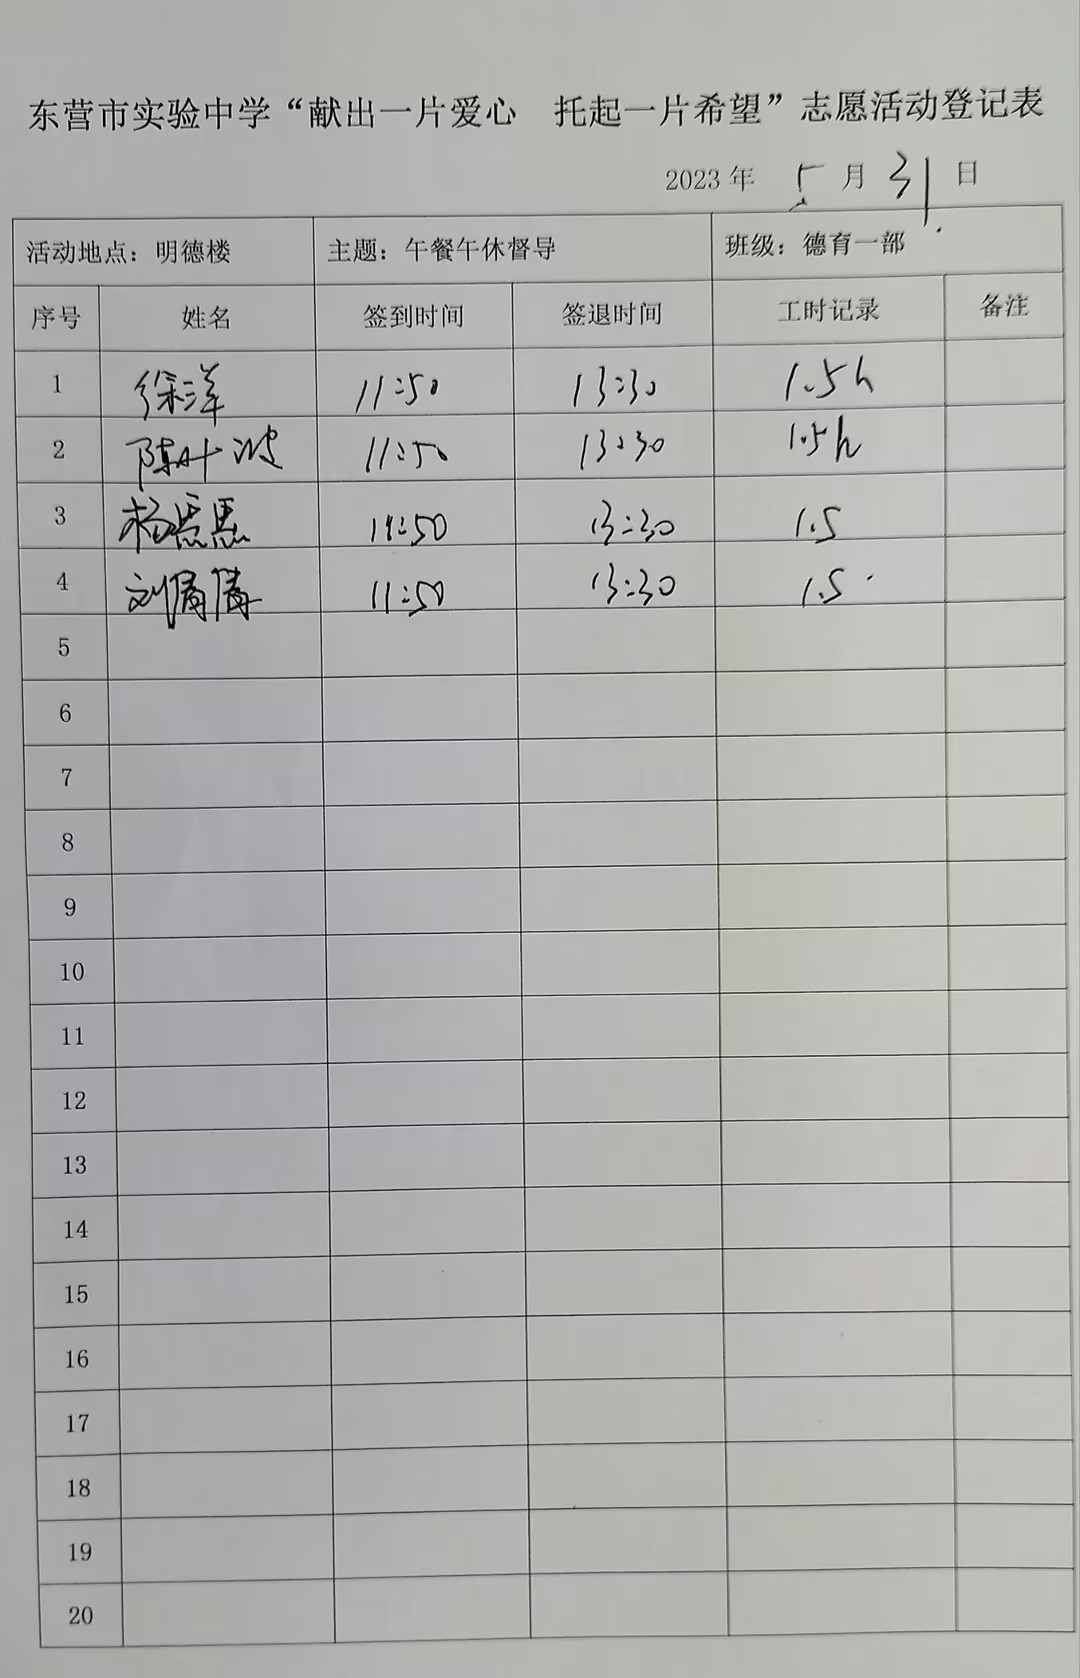 东营市实验中学“献出一片爱心 托起一片希望”志愿活动登记表
2023 年 5 月 31 日
活动地点：明德楼 主题：午餐午休督导 班级：德育一部
序号 姓名 签到时间 签退时间 工时记录 备注
1 徐洋 11:50 13:30 1.5h
2 陈叶波 11:50 13:30 1.5h
3 杨 11:50 13:30 1.5
4 刘 11:50 13:30 1.5
5
6
7
8
9
10
11
12
13
14
15
16
17
18
19
20